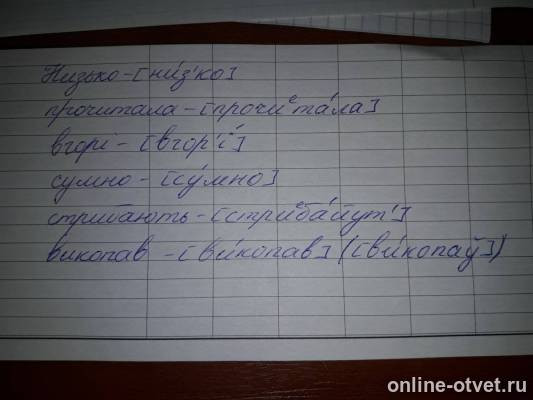 Низько-[ни́з'ко]
прочитала-[прочиᵉта́ла]
вгорі-[вгор'і́]
сумно-[су́мно]
стрибають-[стриᵉба́йут']
викопав-[ви́копав] ([ви́копаў])
online-otvet.ru